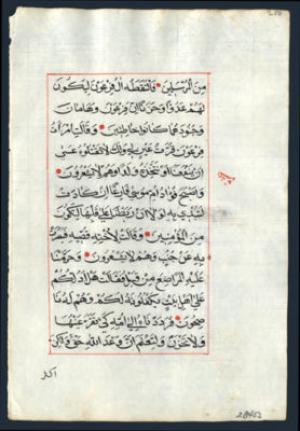 مِنَ الْمُرْسَلِينَ فَالْتَقَطَهُ اٰلُ فِرْعَوْنَ لِيَكُونَ
لَهُمْ عَدُوًّا وَحَزَنًا اِنَّ فِرْعَوْنَ وَهَامَانَ
وَجُنُودَهُمَا كَانُوا خَاطِئِينَ وَقَالَتِ امْرَأَتُ
فِرْعَوْنَ قُرَّتُ عَيْنٍ لِي وَلَكَ لَا تَقْتُلُوهُ عَسَى
اَنْ يَنْفَعَنَا اَوْ نَتَّخِذَهُ وَلَدًا وَهُمْ لَا يَشْعُرُونَ
وَاَصْبَحَ فُؤَادُ اُمِّ مُوسَى فَارِغًا اِنْ كَادَتْ
لَتُبْدِي بِهِ لَوْلَا اَنْ رَبَطْنَا عَلَى قَلْبِهَا لِتَكُونَ
مِنَ الْمُؤْمِنِينَ وَقَالَتْ لِاُخْتِهِ قُصِّيهِ فَبَصُرَتْ
بِهِ عَنْ جُنُبٍ وَهُمْ لَا يَشْعُرُونَ وَحَرَّمْنَا
عَلَيْهِ الْمَرَاضِعَ مِنْ قَبْلُ فَقَالَتْ هَلْ اَدُلُّكُمْ
عَلَى اَهْلِ بَيْتٍ يَكْفُلُونَهُ لَكُمْ وَهُمْ لَهُ نَا
صِحُونَ فَرَدَدْنَاهُ اِلَى اُمِّهِ كَيْ تَقَرَّ عَيْنُهَا
وَلَا تَحْزَنَ وَلِتَعْلَمَ اَنَّ وَعْدَ اللهِ حَقٌّ وَلَكِنَّ
اكثر